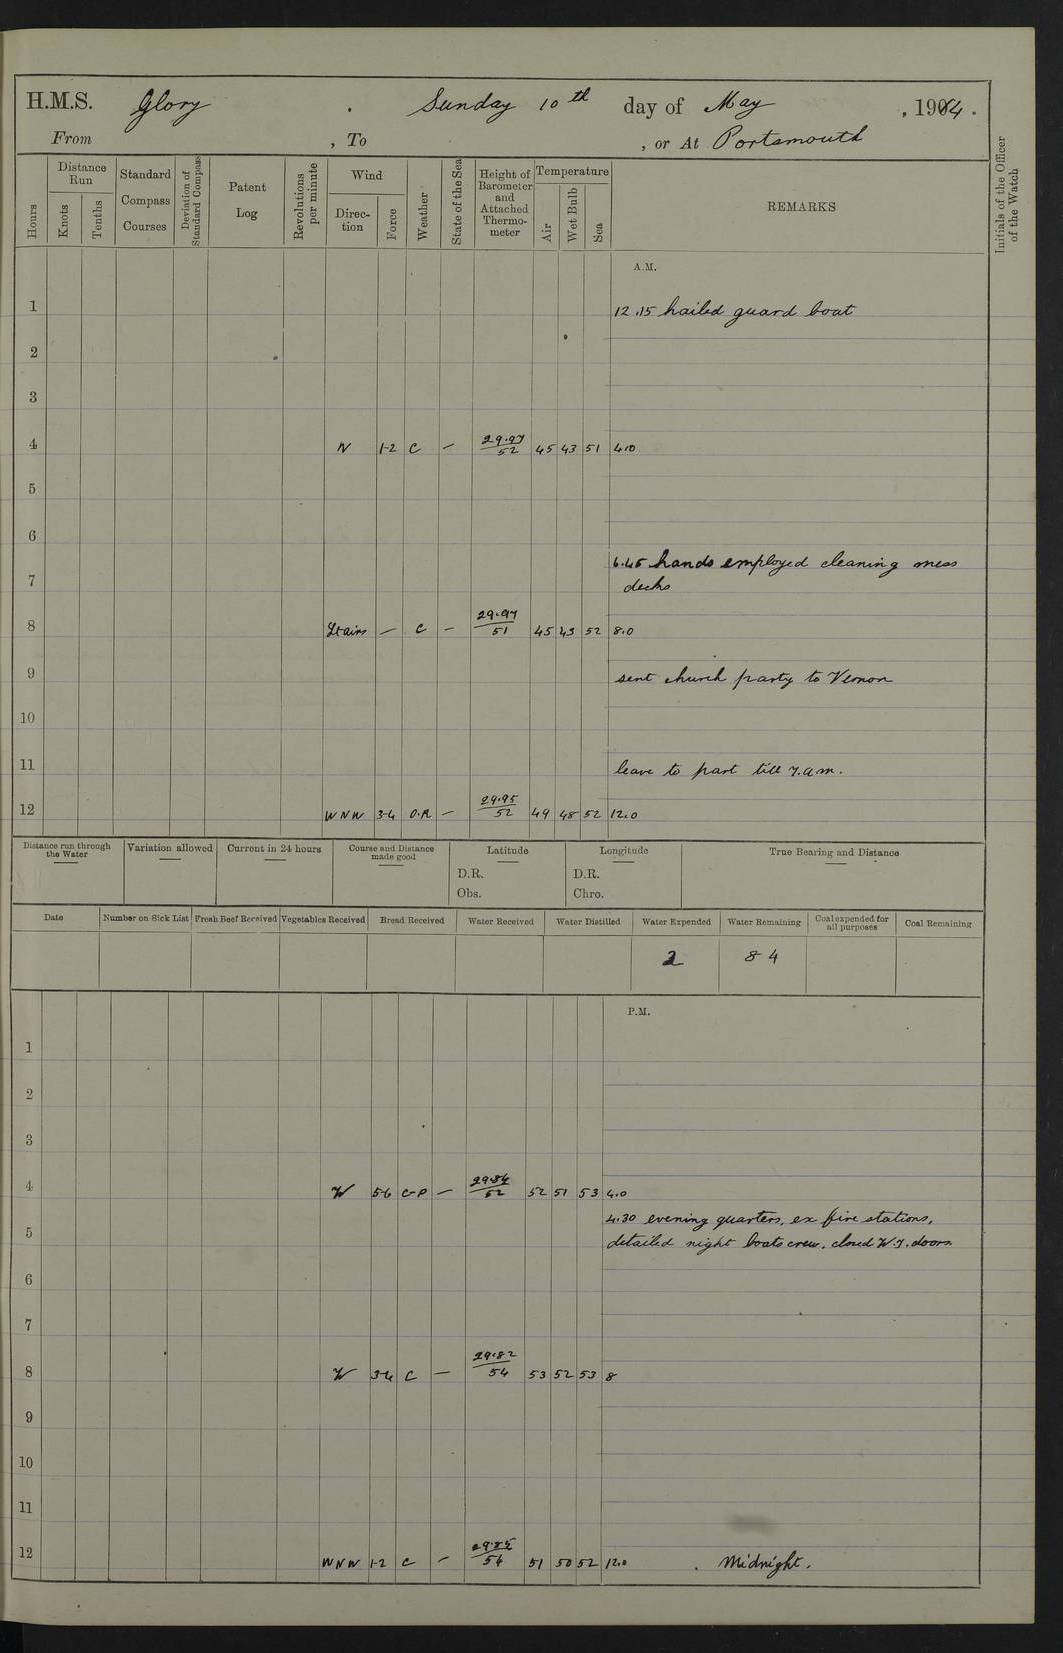 H.M.S. Glory . Sunday 10th day of May , 1914 .
From , To , or At Portsmouth
Hours
Distance Run
Knots
Tenths
Standard Compass Courses
Deviation of Standard Compass
Patent Log
Revolutions per minute
Wind
Direction
Force
Weather
State of the Sea
Height of Barometer and Attached Thermometer
Temperature
Air
Wet Bulb
Sea
REMARKS
Initials of the Officer of the Watch
A.M.
1 12.15 hailed guard boat
2
3
4 N 1-2 C — 29.97/52 45 43 51 4.0
5
6
6.45 hands employed cleaning mess
7 decks
8 Ltairs — C — 29.97/51 45 43 52 8.0
9 sent church party to Vernon
10
11 leave to part till 7.am.
12 WNW 3-4 O.R — 29.95/52 49 48 52 12.0
Distance run through the Water
Variation allowed
Current in 24 hours
Course and Distance made good
Latitude
D.R.
Obs.
Longitude
D.R.
Chro.
True Bearing and Distance
Date Number on Sick List Fresh Beef Received Vegetables Received Bread Received Water Received Water Distilled Water Expended Water Remaining Coal expended for all purposes Coal Remaining
2 84
P.M.
1
2
3
4 W 5-6 C-P — 29.84/52 52 51 53 4.0
4.30 evening quarters, ex fire stations,
5 detailed night boats crew, closed W.T. doors
6
7
8 W 3-4 C — 29.82/54 53 52 53 8
9
10
11
12 WNW 1-2 C — 29.85/54 51 50 52 12.0 Midnight.